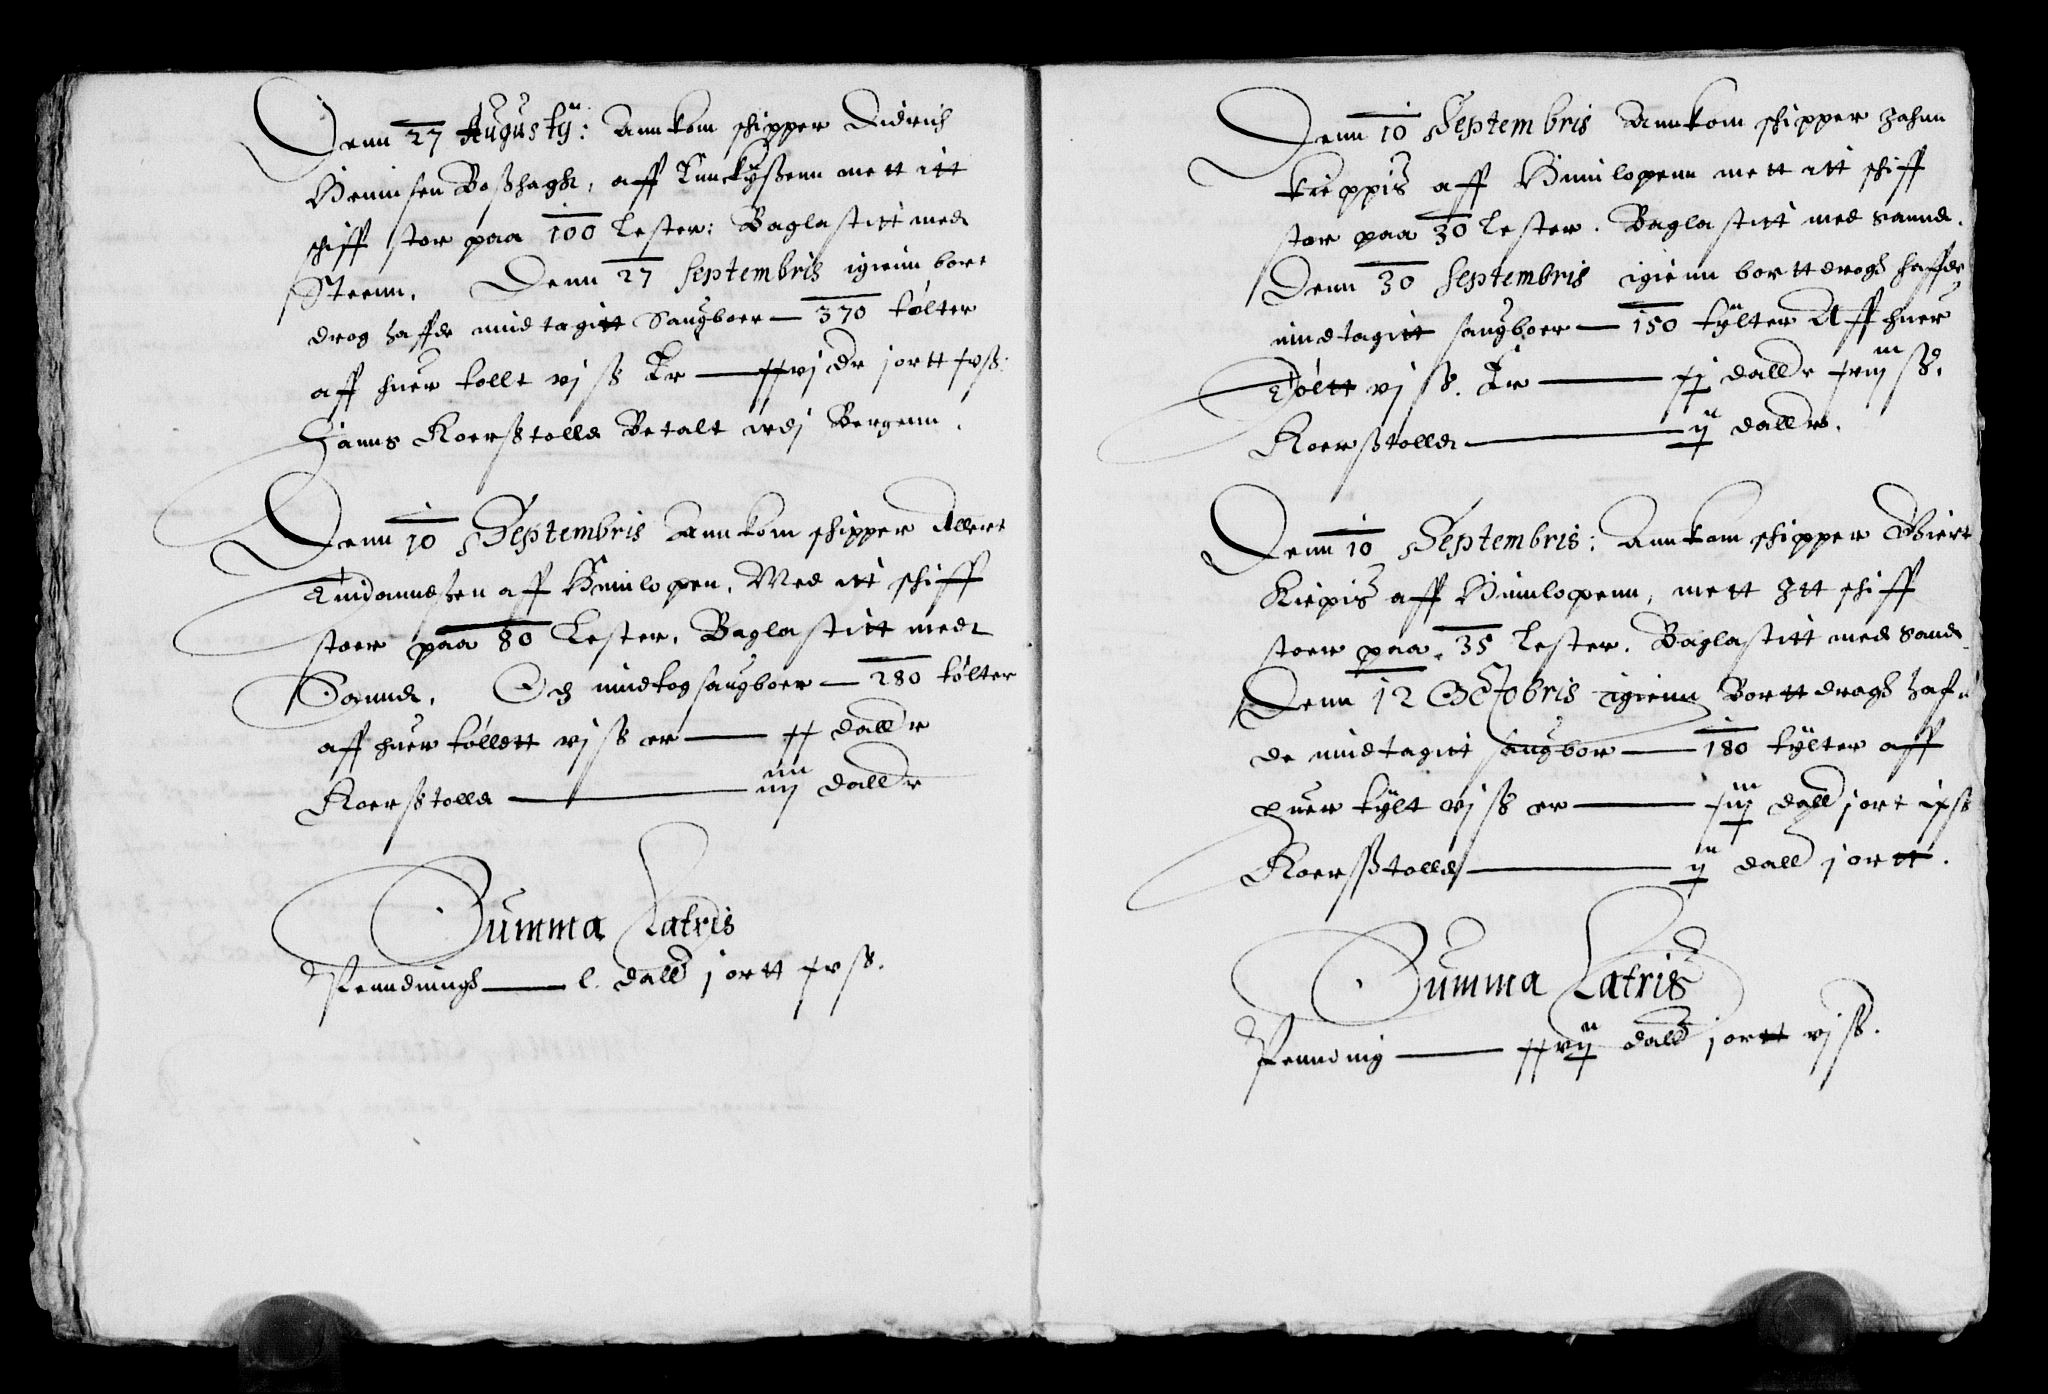 Denn 27 Augustij: Annkom schipper Didrich
Henninsen Boßhagh, aff Ennckyßenn mett itt
schiff stor paa 100 Lester: Baglastitt med
Steenn. Denn 27 Septembris igienn bort
drog haffde inndtagitt Saugboer — 370 tølter
aff huer tollt vj ß Er — xxvj dr j ortt xv ß:
Hanns Koerßtolle Betalt vdj Bergenn.
Denn 10 Septembris Annkom schipper Allert
aff Hinnlopen, Med itt schiff
stoer paa 80 Lester, Baglastitt med
Sannd. Och inndtog saugboer — 280 tølter
aff huer tøllett vj ß er — xx dallr
Koerßtolle — iiij dallr
Summa Latris
Penndingh — l. dall j ortt xv ß.
Denn 10 Septembris Annkom schipper Jahnn
Kieppis aff Hinnlopenn mett itt schiff
stor paa 30 Lester. Baglastitt med Sannd.
Denn 30 Septembris igienn bortt drogh haffde
inndtagitt saugboer — 150 tylter Aff huer
Tøltt vj ß. Er — xj dallr xviij ß.
Koerßtolle — ij dallr.
Denn 10 Septembris: Annkom schipper Giert
Kiepis aff Hinnlopenn, mett Itt schiff
stoer paa 35 Lester. Baglastitt med Sand
Denn 12 Octobris igienn Bortt drogh haf
de inndtagitt saugbor — 180 tylter aff
huer tylt vj ß er — xiij dall j ort ix ß
Koerßtolle — ij dall j ortt.
Summa Latris
Penning — xxviij dall j ortt vj ß.